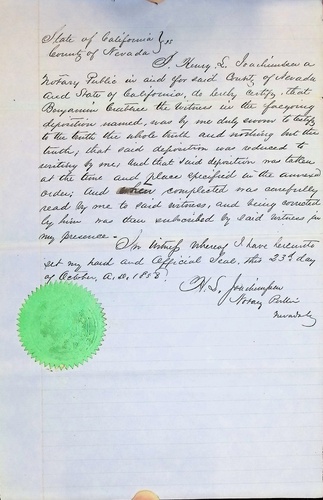 State of California } ss
County of Nevada }
I, Henry L. Joachimsen a
Notary Public in and for said County of Nevada
and State of California, do herby certify, that
Benjamin the witness in the foregoing
deposition named, was by me duly sworn to testify
to the truth the whole truth and nothing but the
truth; that said deposition was reduced to
writing by me, And that said deposition was taken
at the time and place specified in the annexed
order; And when completed was carefully
read by me to said witness, and being corrected
by him was then subscribed by said witness in
my presence.
In Witness whereof I have hereunto
set my hand and Official Seal, this 23d day
of October, A.D. 1858.
H. L. Joachimsen
Notary Public
Nevada Co